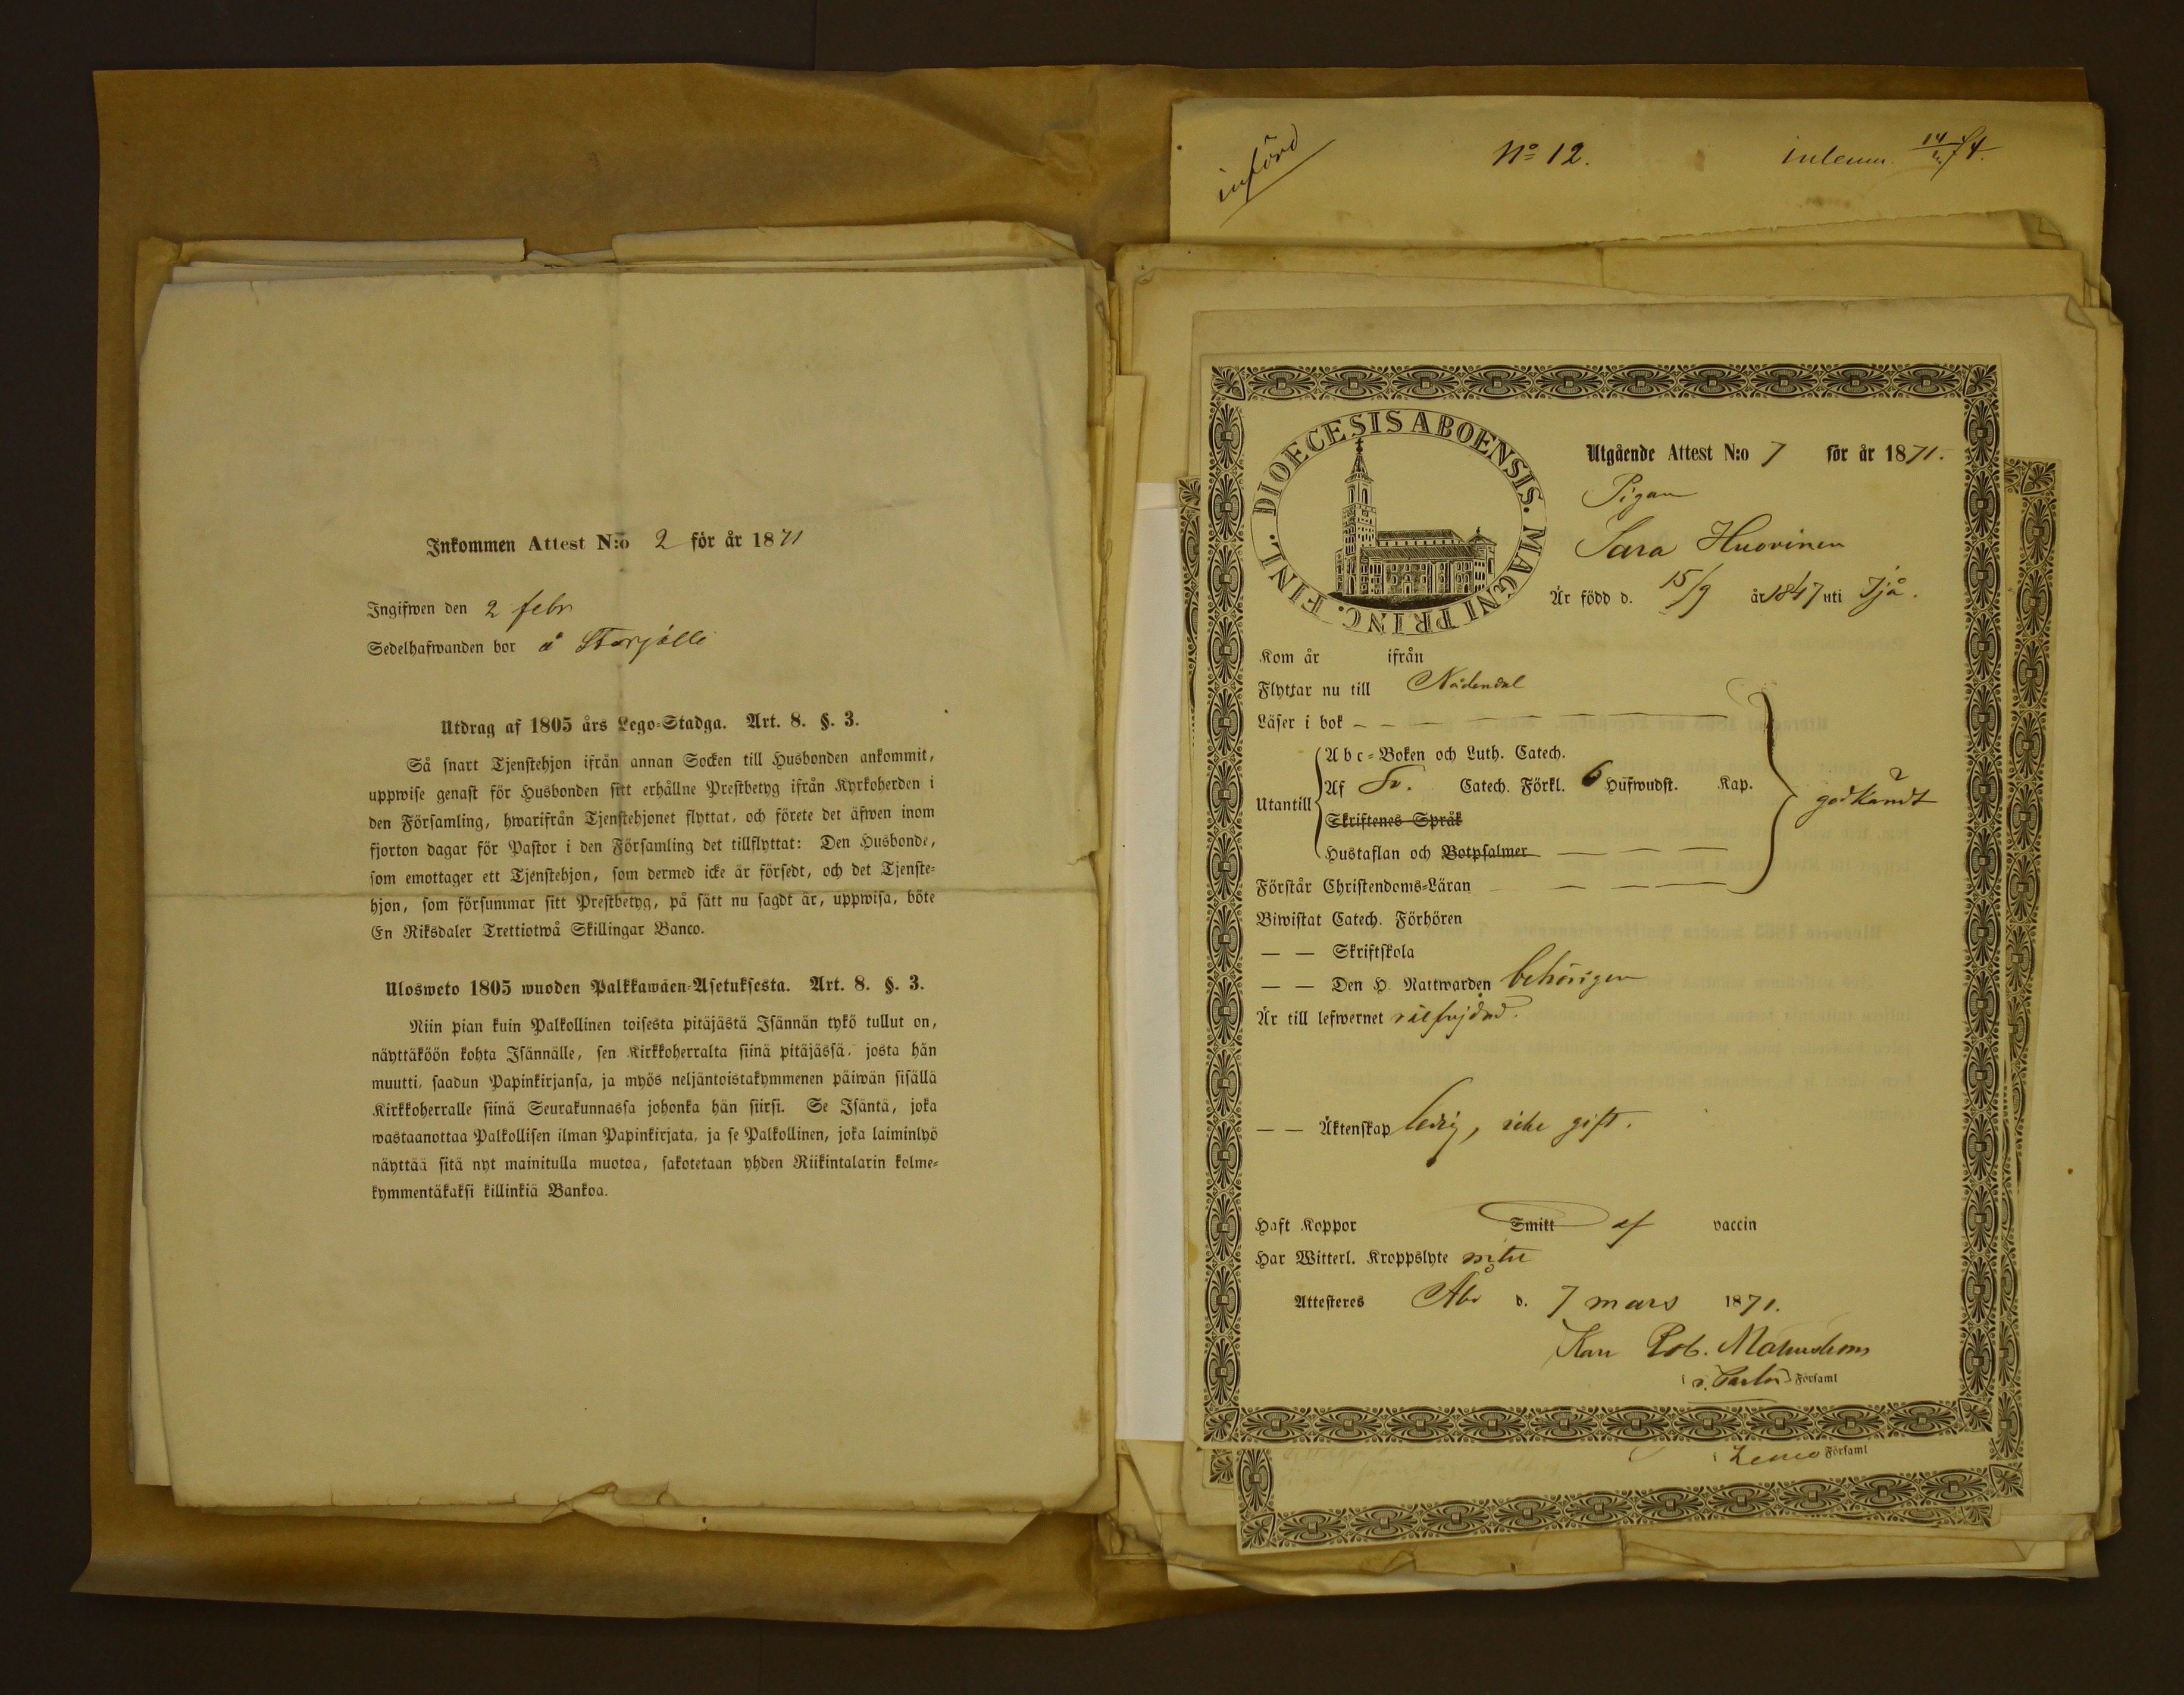 Inkommen Attest N:o 2 för år 1871
Ingifwen den 2 febr
Sedelhafwanden bor å Storjälli
Utdrag af 1805 års Lego-Stadga. Art. 8. §. 3.
Så snart Tjenstehjon ifrån annan Socken till Husbonden ankommit,
uppwise genast för Husbonden sitt erhållne Prestbetyg ifrån Kyrkoherden i
den Församling, hwarifrån Tjenstehjonet flyttat, och förete det äfwen inom
fjorton dagar för Pastor i den Församling det tillflyttat: Den Husbonde,
som emottager ett Tjenstehjon, som dermed icke är försedt, och det Tjenste-
hjon, som försummar sitt Prestbetyg, på sätt nu sagdt är, uppwisa, böte
En Riksdaler Trettiotwå Skillingar Banco.
Ulosweto 1805 wuoden Palkkawäen-Asetuksesta. Art. 8. §. 3.
Niin pian kuin Palkollinen toisesta pitäjästä Isännän tykö tullut on,
näyttäköön kohta Isännälle, sen Kirkkoherralta siinä pitäjässä, josta hän
muutti, saadun Papinkirjansa, ja myös neljäntoistakymmenen päiwän sisällä
Kirkkoherralle siinä Seurakunnassa johonka hän siirsi. Se Isäntä, joka
wastaanottaa Palkollisen ilman Papinkirjata, ja se Palkollinen, joka laiminlyö
näyttää sitä nyt mainitulla muotoa, sakotetaan yhden Riikintalarin kolme-
kymmentäkaksi killinkiä Bankoa.
införd
No 12.
inlemn. 14/ 74.
DIOECESIS ABOENSIS. MAGNI PRINC. FINL.
Utgående Attest N:o 7 för år 1871.
Pigan
Sara Huovinen
Är född d. 15/9 år 1847 uti Ijå.
Kom år ifrån
Flyttar nu till Nådendal
Läser i bok – – – – – – –
Utantill
Abc-Boken och Luth. Catech.
Af Sv. Catech. Förkl. 6 Hufwudst. Kap.
Skriftenes Språk
Hustaflan och Botpsalmer – – –
godkändt
Förstår Christendoms-Läran – – – –
Biwistat Catech. Förhören
– – Skriftskola
– – Den H. Nattwarden behörigen
Är till lefwernet välfrejdad.
– – Äktenskap ledig, icke gift.
Haft Koppor Smitt af vaccin
Har Witterl. Kroppslyte intet
Attesteras Åbo d. 7 mars 1871.
Karl Rob. Malmström
i v. Pastor Församl
i Lemo Församl